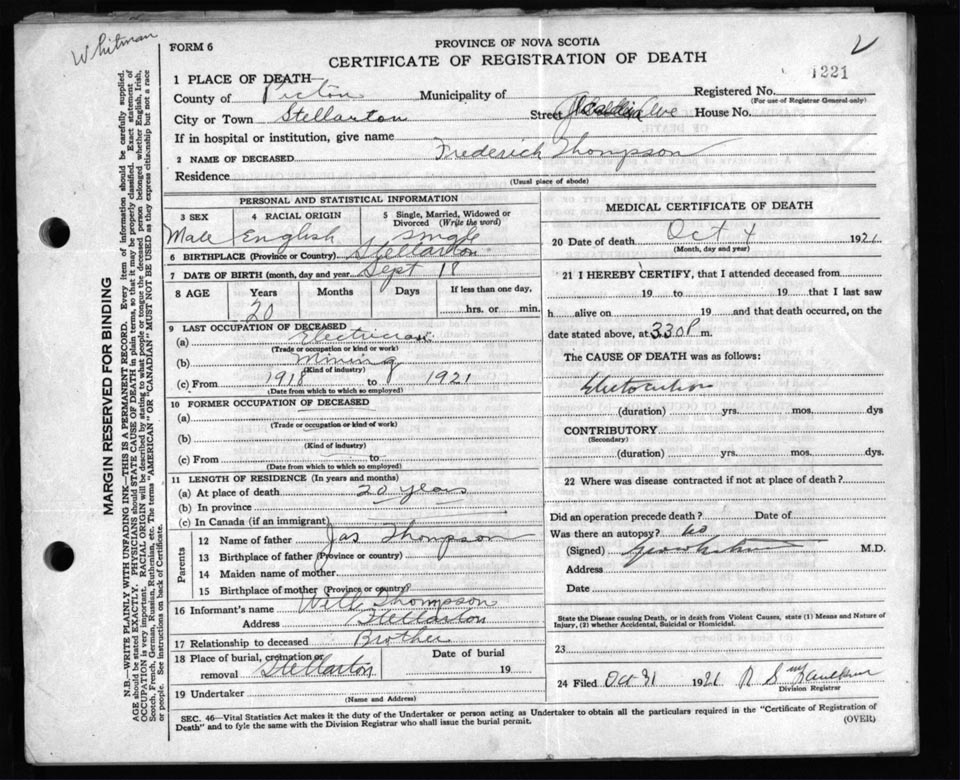 Whitman
FORM 6
PROVINCE OF NOVA SCOTIA
CERTIFICATE OF REGISTRATION OF DEATH
1221
1 PLACE OF DEATH
County of Pictou Municipality of Registered No.
(For use of Registrar General only)
City or Town Stellarton Street Ave House No.
If in hospital or institution, give name
2 NAME OF DECEASED Frederick Thompson
Residence
(Usual place of abode)
PERSONAL AND STATISTICAL INFORMATION
3 SEX 4 RACIAL ORIGIN 5 Single, Married, Widowed or Divorced (Write the word)
Male English Single
6 BIRTHPLACE (Province or Country) Stellarton
7 DATE OF BIRTH (month, day and year Sept 18
8 AGE Years Months Days If less than one day,
20 hrs. or min.
9 LAST OCCUPATION OF DECEASED
(a) Electrician
(Trade or occupation or kind or work)
(b) Mining
(Kind of industry)
(c) From 1918 to 1921
(Date from which to which so employed)
10 FORMER OCCUPATION OF DECEASED
(a)
(Trade or occupation or kind of work)
(b)
(Kind of industry)
(c) From to
(Date from which to which so employed)
11 LENGTH OF RESIDENCE (In years and months)
(a) At place of death 20 years
(b) In province
(c) In Canada (if an immigrant)
Parents
12 Name of father Jas Thompson
13 Birthplace of father (Province or country)
14 Maiden name of mother
15 Birthplace of mother (Province or country)
16 Informant's name Will Thompson
Address Stellarton
17 Relationship to deceased Brother
18 Place of burial, cremation or removal Stellarton Date of burial 19
19 Undertaker
(Name and Address)
MEDICAL CERTIFICATE OF DEATH
20 Date of death Oct 4 1921
(Month, day and year)
21 I HEREBY CERTIFY, that I attended deceased from
19 to 19 that I last saw
h alive on 19 and that death occurred, on
date stated above, at 330 P m.
The CAUSE OF DEATH was as follows:
Electocution
(duration) yrs. mos. dys
CONTRIBUTORY
(Secondary)
(duration) yrs. mos. dys.
22 Where was disease contracted if not at place of death?
Did an operation precede death? Date of
Was there an autopsy? no
(Signed) M.D.
Address
Date
State the Disease causing Death, or in death from Violent Causes, state (1) Means and Nature of
Injury, (2) whether Accidental, Suicidal or Homicidal.
23
24 Filed Oct 31 1921 R S
Division Registrar
SEC. 46—Vital Statistics Act makes it the duty of the Undertaker or person acting as Undertaker to obtain all the particulars required in the "Certificate of Registration of
Death" and to fyle the same with the Division Registrar who shall issue the burial permit. (OVER)
MARGIN RESERVED FOR BINDING
N.B.—WRITE PLAINLY WITH UNFADING INK—THIS IS A PERMANENT RECORD. Every item of information should be carefully supplied.
AGE should be stated EXACTLY. PHYSICIANS should STATE CAUSE OF DEATH in plain terms, so that it may be properly classified. Exact statement of
OCCUPATION is very important. RACIAL ORIGIN will be described by stating to what people or tongue the deceased person belonged whether English, Irish,
Scotch, French, German, Russian, Ruthenian, etc. The terms "AMERICAN" OR "CANADIAN" MUST NOT BE USED as they express citizenship but not a race
or people. See instructions on back of Certificate.